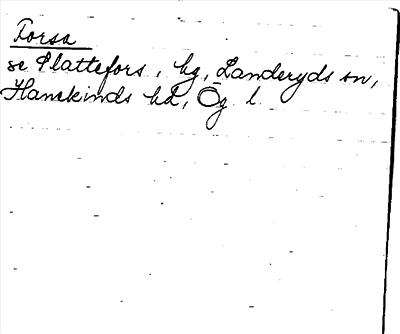 Forsa
se Slattefors, hg, Landeryds sn,
Hanekinds hd, Ög l.